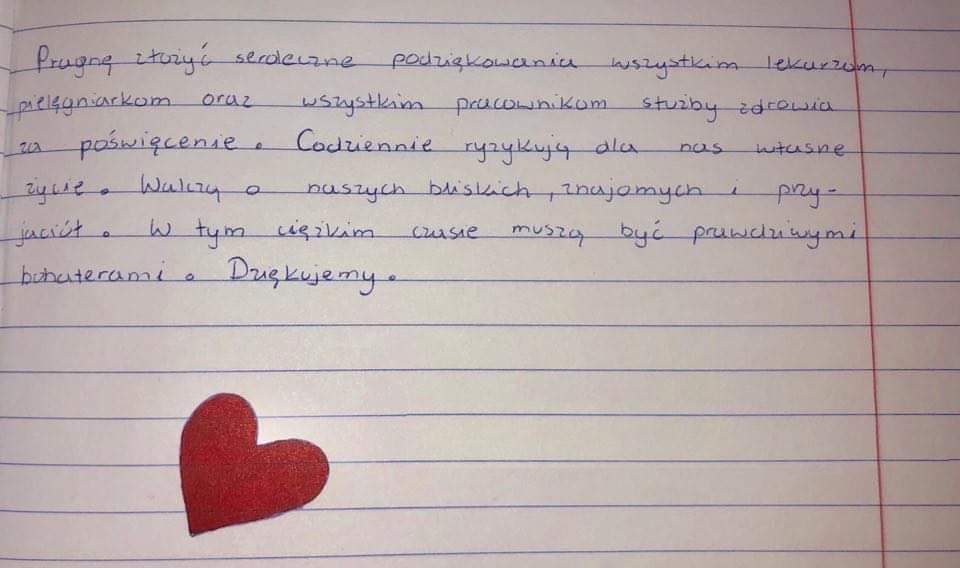 Pragnę złożyć serdeczne podziękowania wszystkim lekarzom,
pielęgniarkom oraz wszystkim pracownikom służby zdrowia
za poświęcenie. Codziennie ryzykują dla nas własne
życie. Walczą o naszych bliskich, znajomych i przy-
jaciół. W tym ciężkim czasie muszą być prawdziwymi
bohaterami. Dziękujemy.